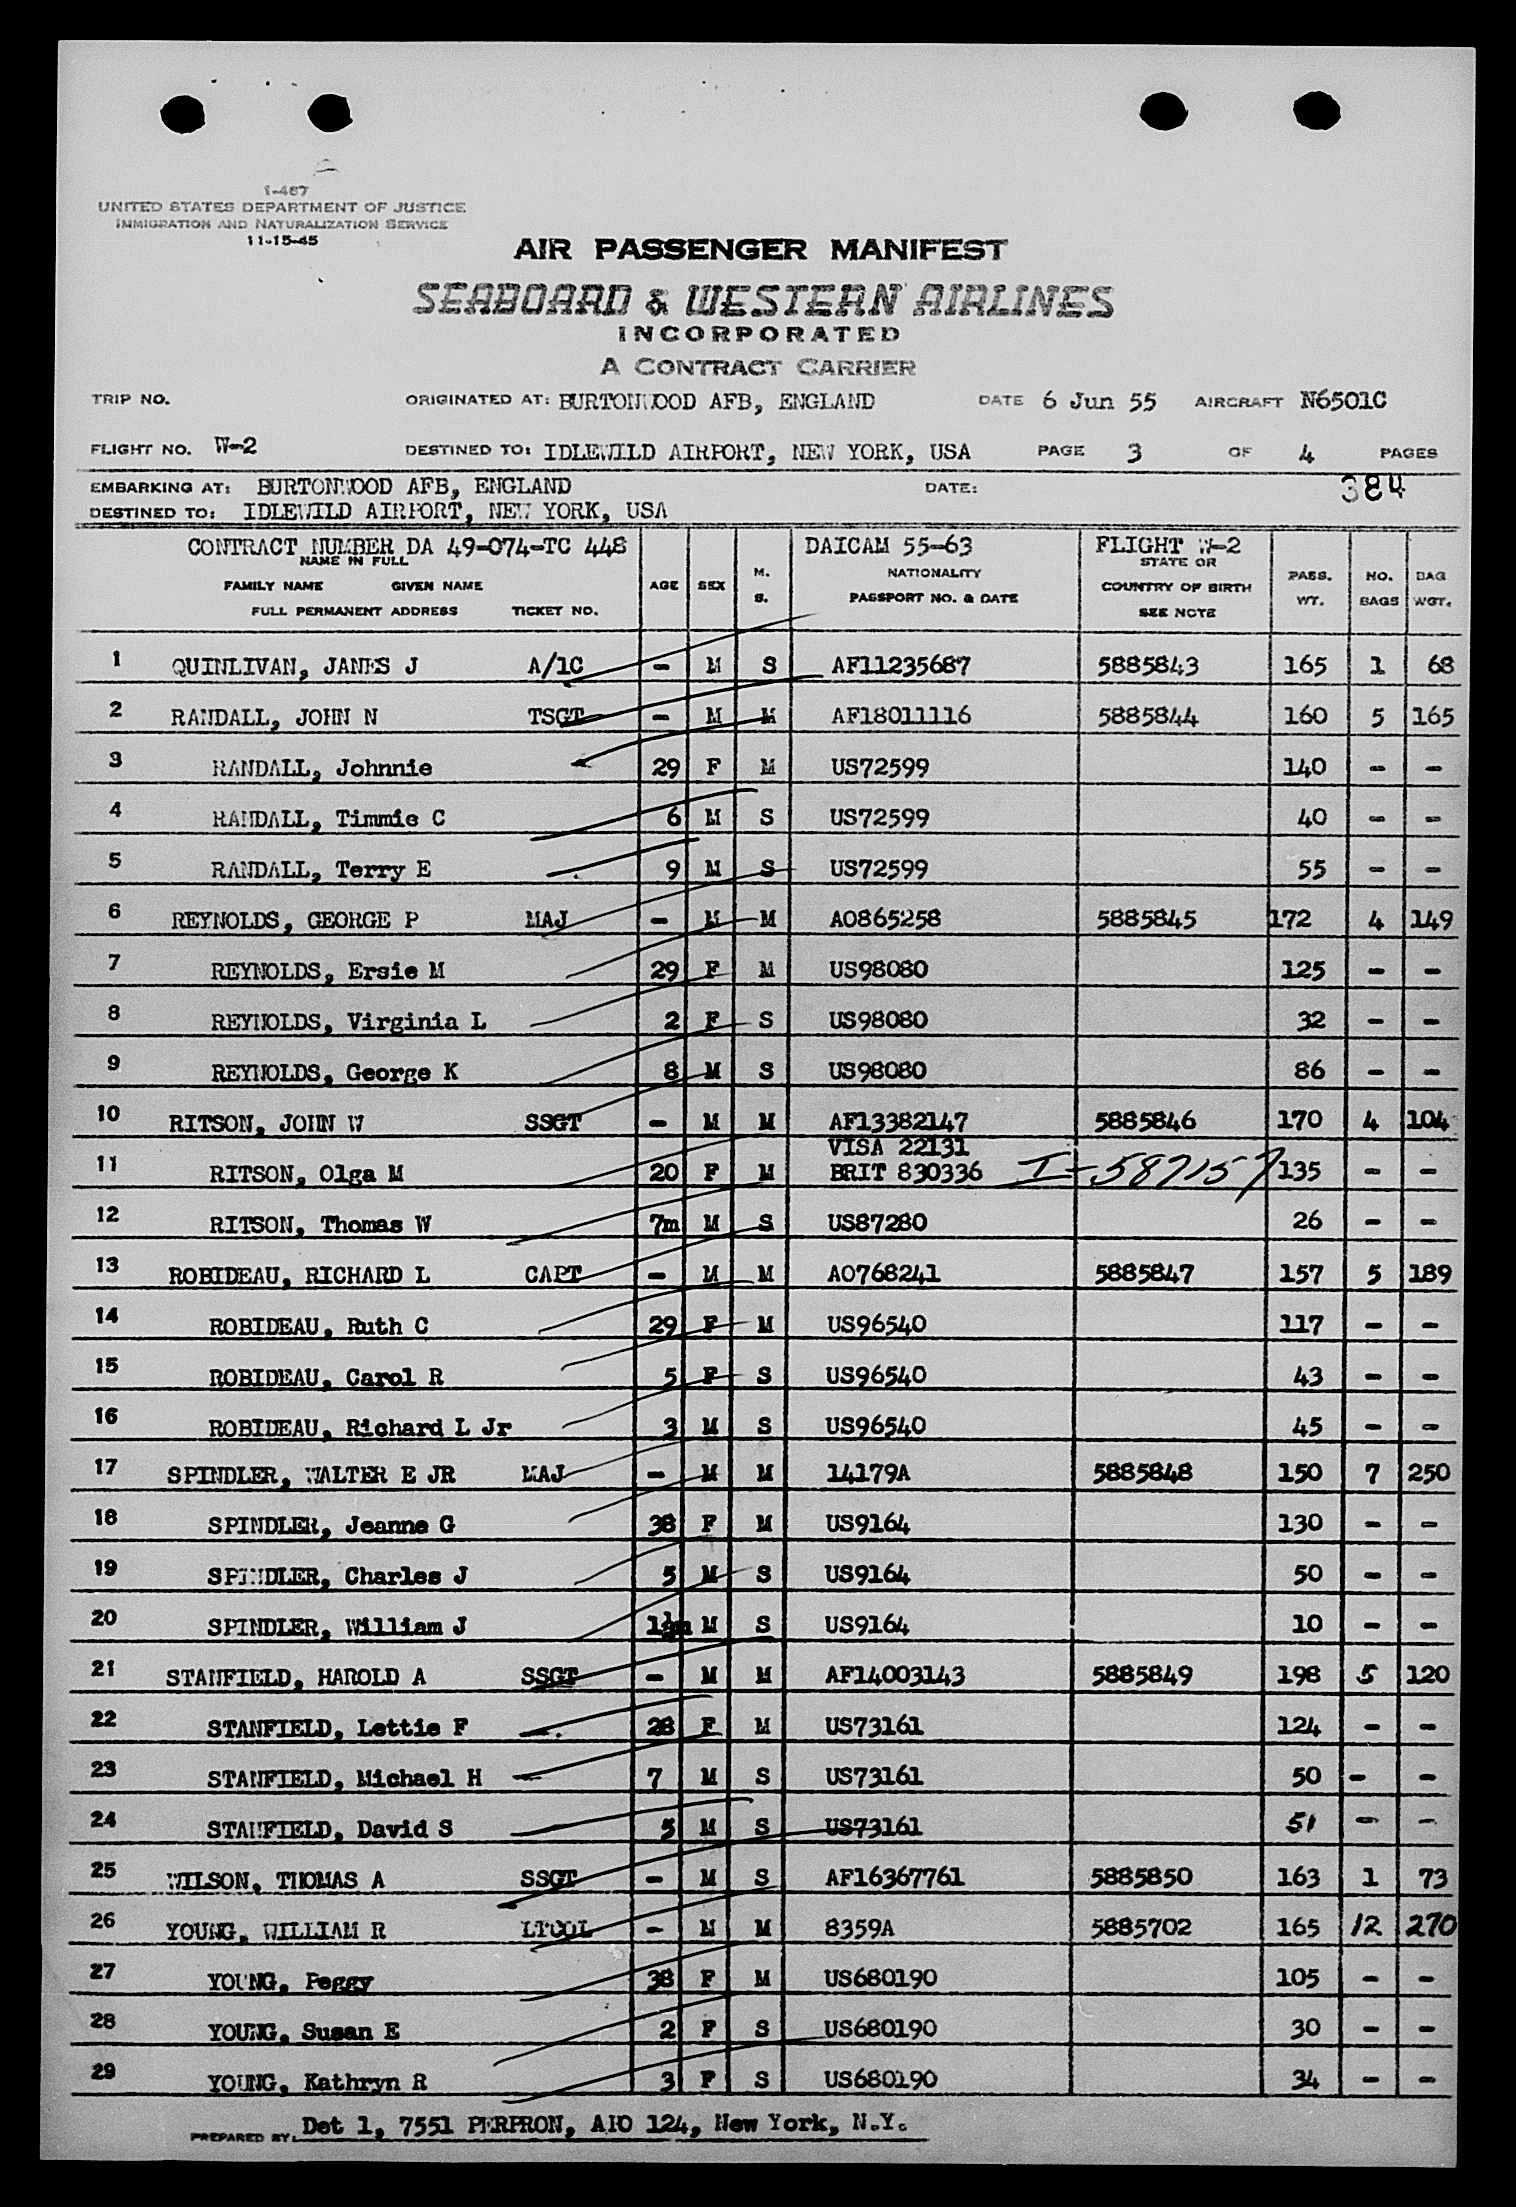 1-467
UNITED STATES DEPARTMENT OF JUSTICE
IMMIGRATION AND NATURALIZATION SERVICE
11-15-45
AIR PASSENGER MANIFEST
SEABOARD & WESTERN AIRLINES
INCORPORATED
A CONTRACT CARRIER
TRIP NO. ORIGINATED AT: BURTONWOOD AFB, ENGLAND DATE 6 Jun 55 AIRCRAFT N6501C
FLIGHT NO. W-2 DESTINED TO: IDLEWILD AIRPORT, NEW YORK, USA PAGE 3 OF 4 PAGES
EMBARKING AT: BURTONWOOD AFB, ENGLAND DATE: 384
DESTINED TO: IDLEWILD AIRPORT, NEW YORK, USA
CONTRACT NUMBER DA 49-074-TC 448 DAICAM 55-63 FLIGHT W-2
NAME IN FULL STATE OR
FAMILY NAME GIVEN NAME AGE SEX M. NATIONALITY COUNTRY OF BIRTH PASS. NO. BAG
FULL PERMANENT ADDRESS TICKET NO. S. PASSPORT NO. & DATE SEE NOTE WT. BAGS WGT.
1 QUINLIVAN, JAMES J A/1C - M S AF11235687 5885843 165 1 68
2 RANDALL, JOHN N TSGT - M M AF18011116 5885844 160 5 165
3 RANDALL, Johnnie 29 F M US72599 140 - -
4 RANDALL, Timmie C 6 M S US72599 40 - -
5 RANDALL, Terry E 9 M S US72599 55 - -
6 REYNOLDS, GEORGE P MAJ - M M AO865258 5885845 172 4 149
7 REYNOLDS, Ersie M 29 F M US98080 125 - -
8 REYNOLDS, Virginia L 2 F S US98080 32 - -
9 REYNOLDS, George K 8 M S US98080 86 - -
10 RITSON, JOHN W SSGT - M M AF13382147 5885846 170 4 104
VISA 22131
11 RITSON, Olga M 20 F M BRIT 830336 I-587157 135 - -
12 RITSON, Thomas W 7m M S US87280 26 - -
13 ROBIDEAU, RICHARD L CAPT - M M AO768241 5885847 157 5 189
14 ROBIDEAU, Ruth C 29 F M US96540 117 - -
15 ROBIDEAU, Carol R 5 F S US96540 43 - -
16 ROBIDEAU, Richard L Jr 3 M S US96540 45 - -
17 SPINDLER, WALTER E JR MAJ - M M 14179A 5885848 150 7 250
18 SPINDLER, Jeanne G 38 F M US9164 130 - -
19 SPINDLER, Charles J 5 M S US9164 50 - -
20 SPINDLER, William J 1½m M S US9164 10 - -
21 STANFIELD, HAROLD A SSGT - M M AF14003143 5885849 198 5 120
22 STANFIELD, Lettie F 28 F M US73161 124 - -
23 STANFIELD, Michael H 7 M S US73161 50 - -
24 STANFIELD, David S 5 M S US73161 51 - -
25 WILSON, THOMAS A SSGT - M S AF16367761 5885850 163 1 73
26 YOUNG, WILLIAM R LTCOL - M M 8359A 5885702 165 12 270
27 YOUNG, Peggy 38 F M US680190 105 - -
28 YOUNG, Susan E 2 F S US680190 30 - -
29 YOUNG, Kathryn R 3 F S US680190 34 - -
PREPARED BY: Det 1, 7551 PERPRON, APO 124, New York, N.Y.